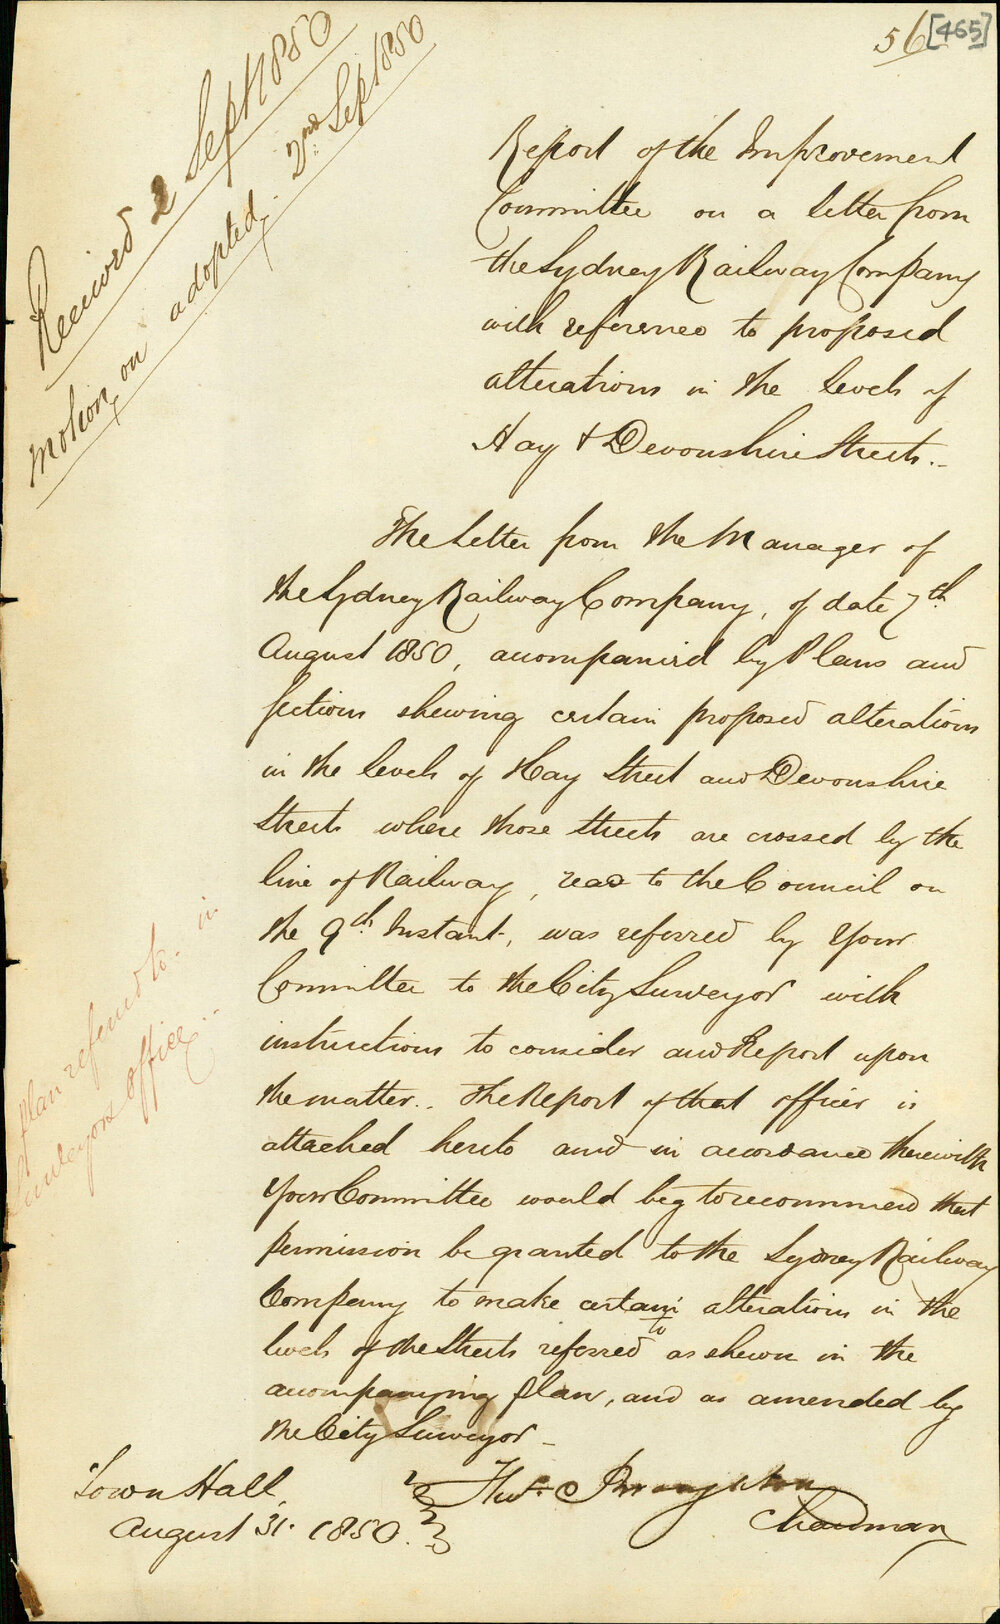 56 [465]
Received 2 Sept 1850
Motion on adopted 2nd Sep 1850
Report of the Improvement
Committee on a letter from
the Sydney Railway Company
with reference to proposed
alterations in the levels of
Hay & Devonshire Streets.-
The Letter from the Manager of
the Sydney Railway Company, of date 7th
August 1850, accompanied by Plans and
Sections shewing certain proposed alterations
in the levels of Hay Street and Devonshire
Streets where those streets are crossed by the
line of Railway, read to the Council on
the 9th Instant, was referred by Your
Committee to the City Surveyor with
instructions to consider and Report upon
the matter.. The Report of that officer is
attached hereto and in accordance therewith
Your Committee would beg to recommend that
permission be granted to the Sydney Railway
Company to make certain alterations in the
levels of the Streets referred to as shewn in the
accompanying plan, and as amended by
the City Surveyor -
plan referred to in
Surveyors office
Town Hall,
August 31. 1850.
Thos. Broughton
Chairman